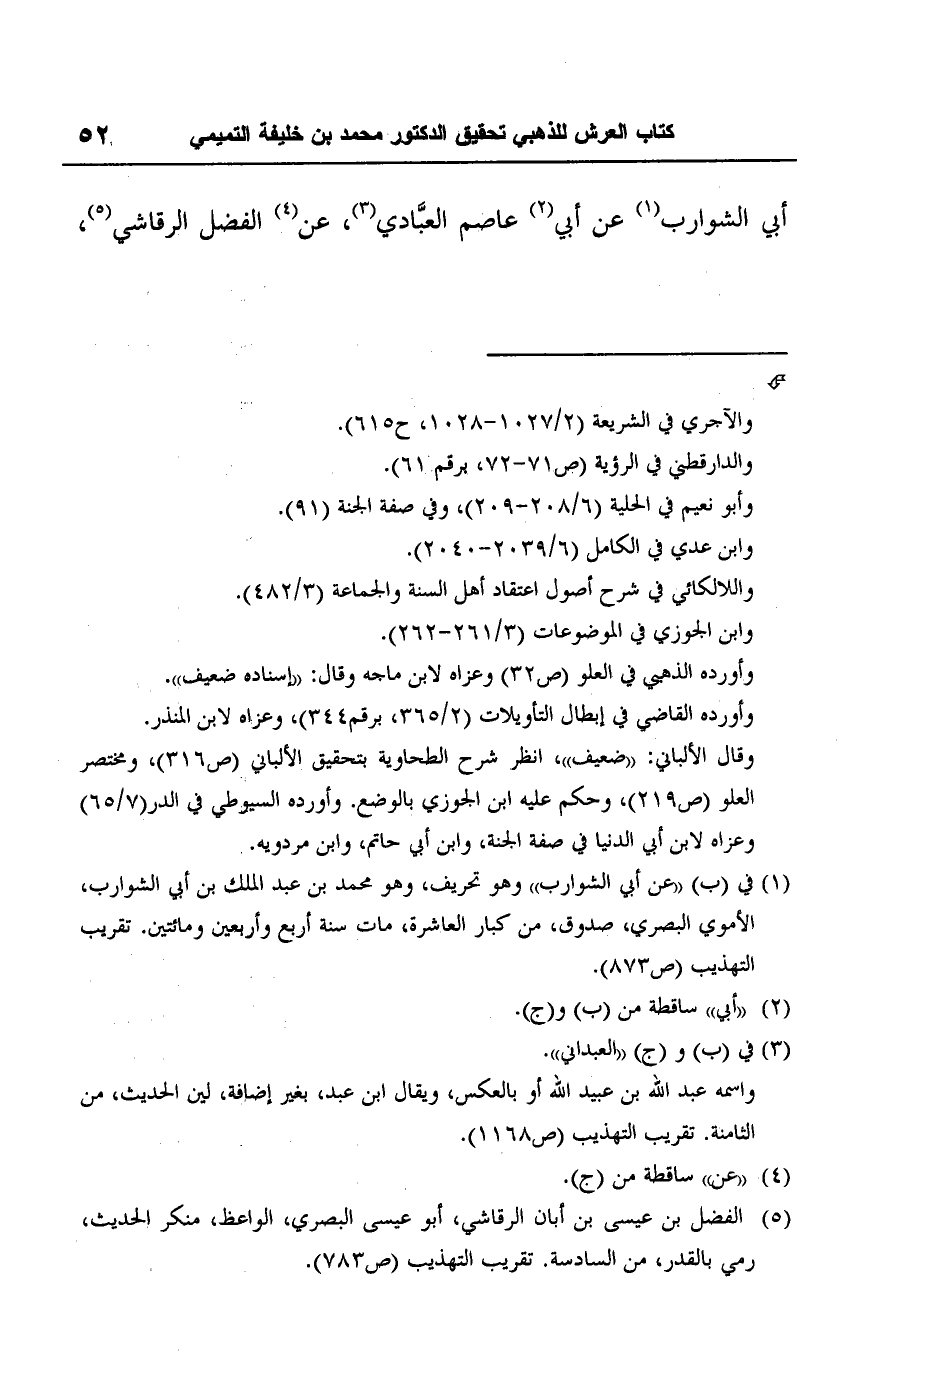 كتاب العرش للذهبي تحقيق الدكتور محمد بن خليفة التميمي ٥٢
أبي الشوارب(١) عن أبي(٢) عاصم العبَّادي(٣)، عن(٤) الفضل الرقاشي(٥)،
والآجري في الشريعة (١٠٢٧/٢–١٠٢٨، ح٦١٥).
والدارقطني في الرؤية (ص٧١–٧٢، برقم ٦١).
وأبو نعيم في الحلية (٢٠٨/٦–٢٠٩)، وفي صفة الجنة (٩١).
وابن عدي في الكامل (٢٠٣٩/٦–٢٠٤٠).
واللالكائي في شرح أصول اعتقاد أهل السنة والجماعة (٤٨٢/٣).
وابن الجوزي في الموضوعات (٢٦١/٣–٢٦٢).
وأورده الذهبي في العلو (ص٣٢) وعزاه لابن ماجه وقال: «إسناده ضعيف».
وأورده القاضي في إبطال التأويلات (٣٦٥/٢، برقم٣٤٤)، وعزاه لابن المنذر.
وقال الألباني: «ضعيف»، انظر شرح الطحاوية بتحقيق الألباني (ص٣١٦)، ومختصر
العلو (ص٢١٩)، وحكم عليه ابن الجوزي بالوضع. وأورده السيوطي في الدر(٦٥/٧)
وعزاه لابن أبي الدنيا في صفة الجنة، وابن أبي حاتم، وابن مردويه.
(١) في (ب) «عن أبي الشوارب» وهو تحريف، وهو محمد بن عبد الملك بن أبي الشوارب،
الأموي البصري، صدوق، من كبار العاشرة، مات سنة أربع وأربعين ومائتين. تقريب
التهذيب (ص٨٧٣).
(٢) «أبي» ساقطة من (ب) و(ج).
(٣) في (ب) و (ج) «العبداني».
واسمه عبد الله بن عبيد الله أو بالعكس، ويقال ابن عبد، بغير إضافة، لين الحديث، من
الثامنة. تقريب التهذيب (ص١١٦٨).
(٤) «عن» ساقطة من (ج).
(٥) الفضل بن عيسى بن أبان الرقاشي، أبو عيسى البصري، الواعظ، منكر الحديث،
رمي بالقدر، من السادسة. تقريب التهذيب (ص٧٨٣).